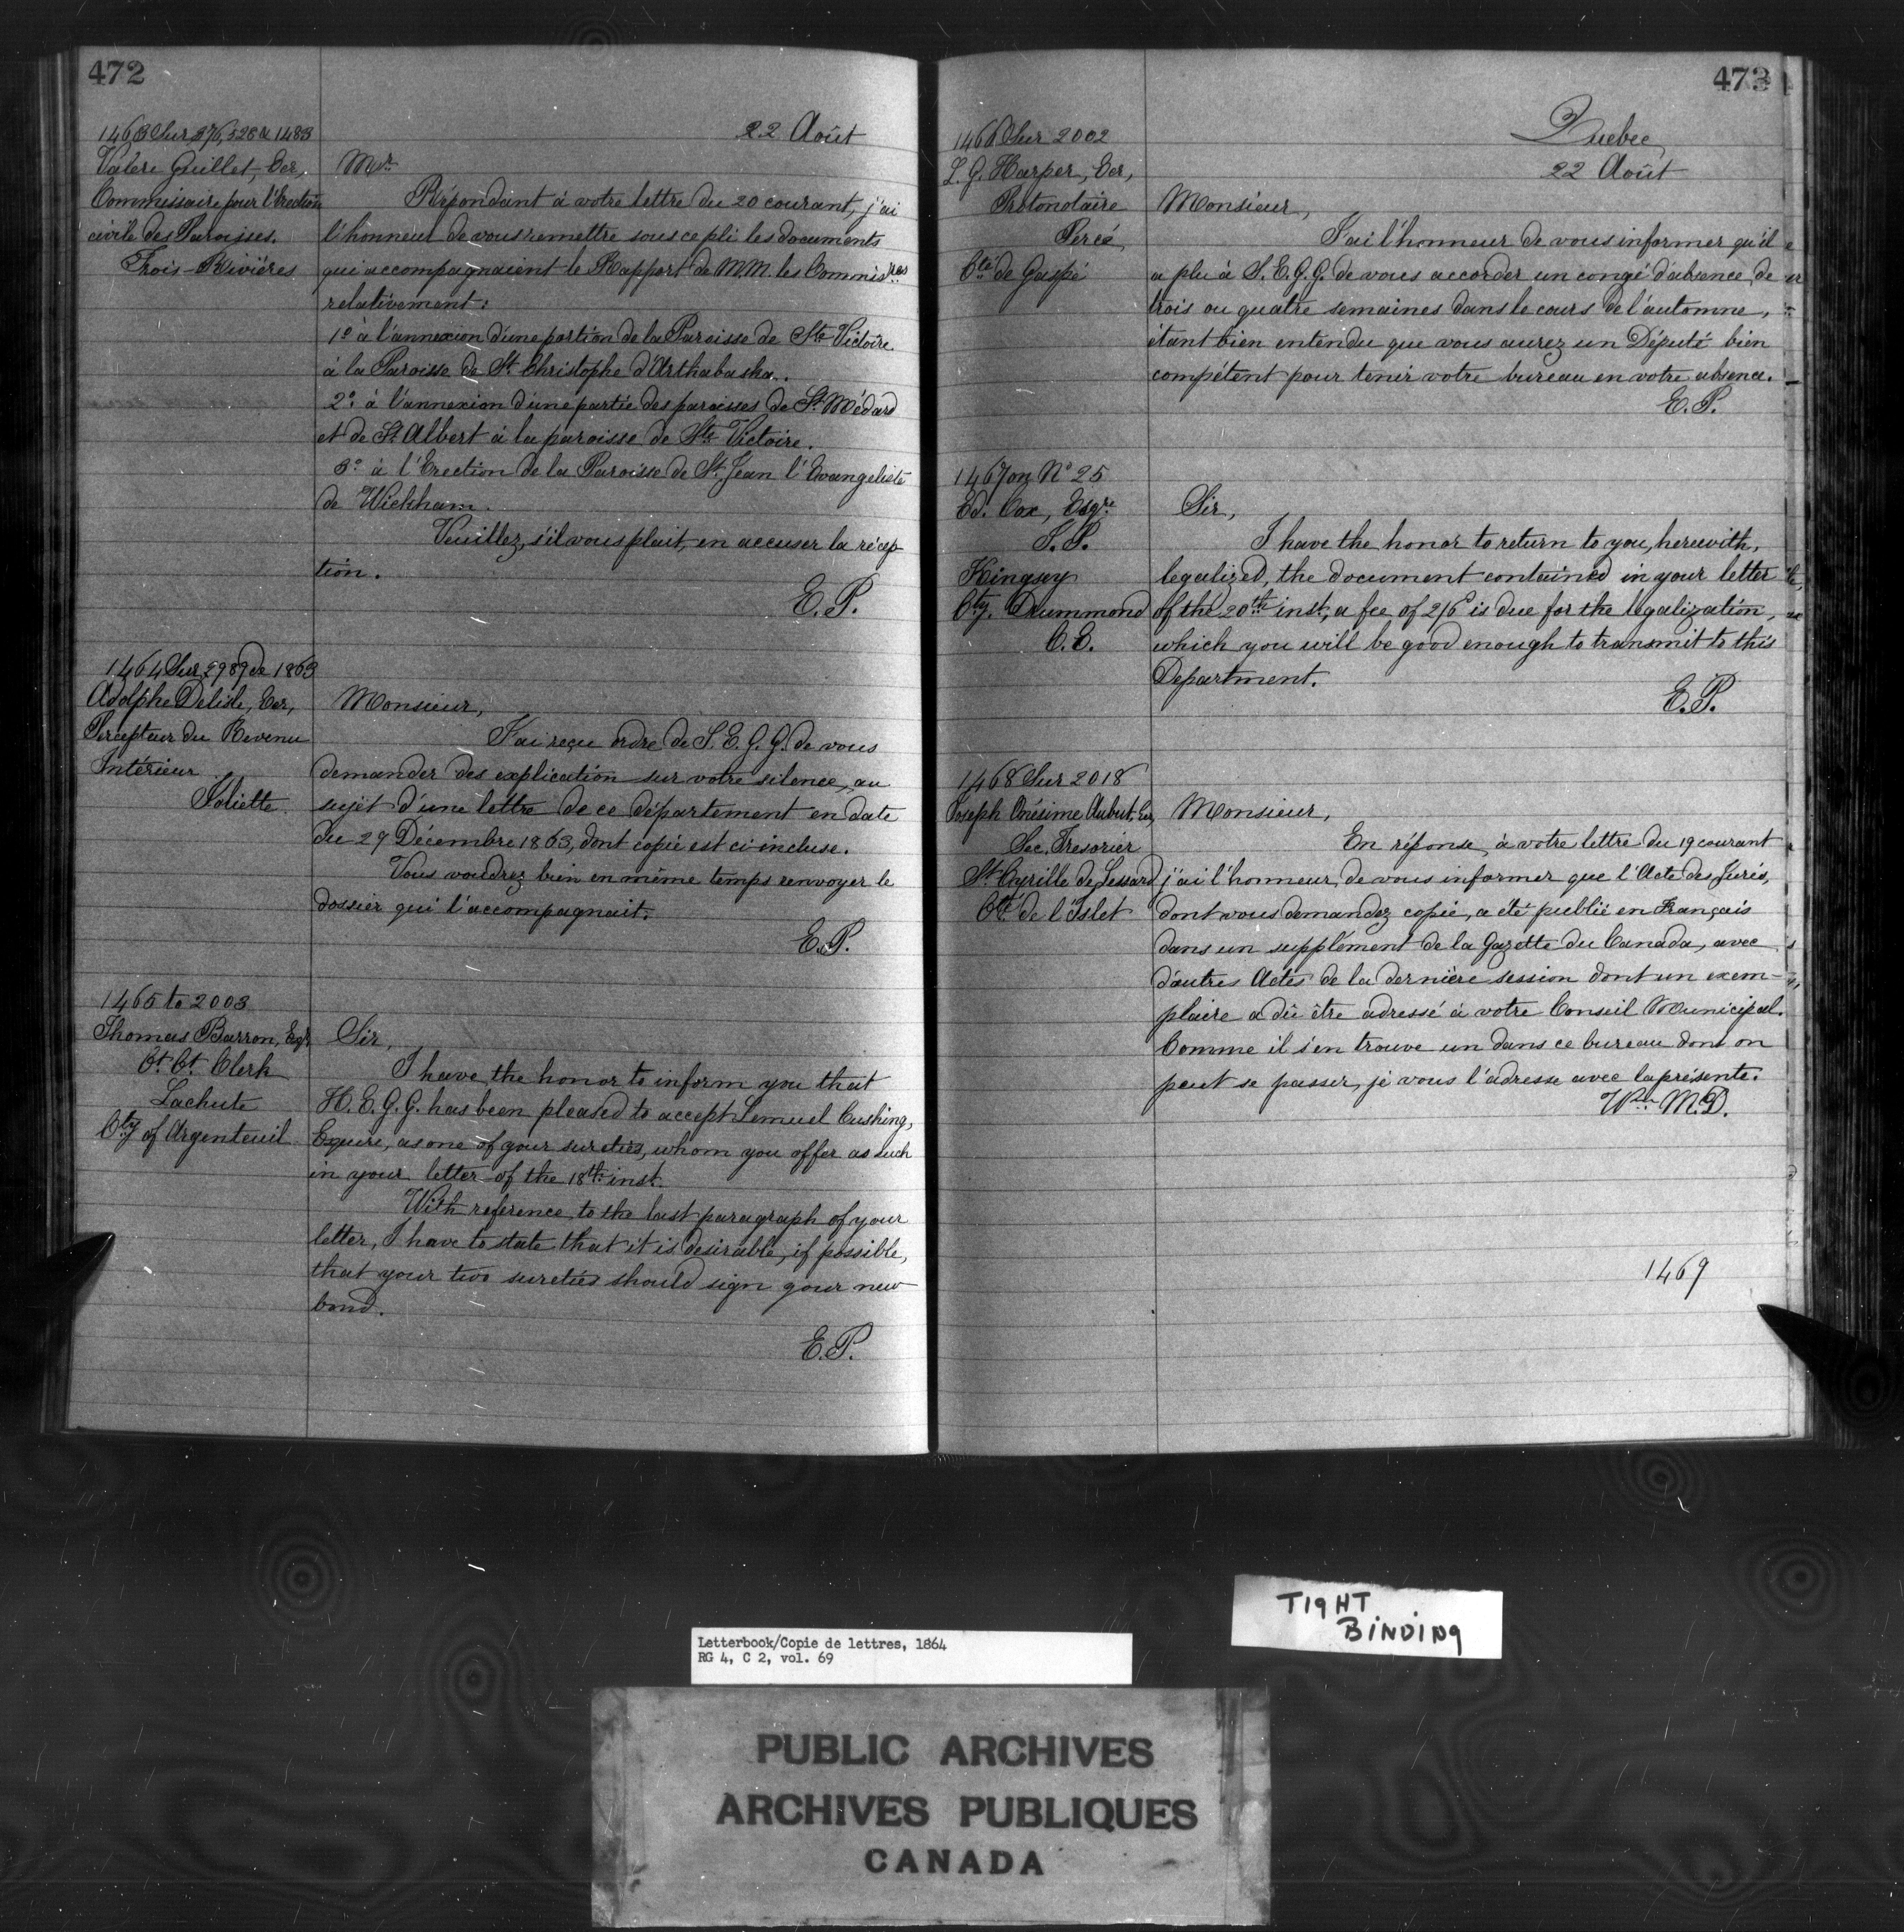 472
22 Août
1463 Sur 376, 528 & 1483
Valère Guillet, Ecr,
Commissaire pour l'Erection
civile des Paroisses.
Trois-Rivières
Mr.
Répondant à votre lettre du 20 courant, j'ai
l'honneur de vous remettre sous ce pli les documents
qui accompagnaient le Rapport de M.M. les Commisres
relativement:
1o à l'annexion d'une portion de la Paroisse de Ste Victoire
à la Paroisse de St. Christophe d'Arthabaska.
2o à l'annexion d'une partie des paroisses de St. Médard
et de St. Albert à la paroisse de Ste Victoire.
3o à l'Erection de la Paroisse de St. Jean l'Evangeliste
de Wickham.
Veuillez, s'il vous plait, en accuser la récep
tion.
E.P.
1464 Sur 2989 de 1863
Adolphe Delisle, Ecr,
Percepteur du Revenu
Intérieur
Joliette
Monsieur,
J'ai reçu ordre de S.E.G.G. de vous
demander des explication sur votre silence, au
sujet d'une lettre de ce département en date
du 29 Décembre 1863, dont copie est ci-incluse.
Vous voudrez bien en même temps renvoyer le
dossier qui l'accompagnait.
E.P.
1465 to 2003
Thomas Barron, Esqr
Ct. Ct. Clerk
Lachute
Cty of Argenteuil
Sir,
I have the honor to inform you that
H.E.G.G. has been pleased to accept Lemuel Cushing,
Esquire, as one of your sureties, whom you offer as such
in your letter of the 18th inst.
With reference to the last paragraph of your
letter, I have to state that it is desirable, if possible,
that your two sureties should sign your new
bond.
E.P.
473
Quebec
22 Août
1466 Sur 2002
L.G. Harper, Ecr,
Protonotaire
Percé
Cté de Gaspé
Monsieur,
J'ai l'honneur de vous informer qu'il
a plu à S.E.G.G. de vous accorder un congé d'absence de
trois ou quatre semaines dans le cours de l'automne,
étant bien entendu que vous aurez un Député bien
compétent pour tenir votre bureau en votre absence.
E.P.
1467 on No 25
Ed. Cox, Esqre
J.P.
Kingsey
Cty. Drummond
C.E.
Sir,
I have the honor to return to you, herewith,
legalized, the document contained in your letter
of the 20th inst, a fee of 2/6 is due for the legalization,
which you will be good enough to transmit to this
Department.
E.P.
1468 Sur 2018
Joseph Onésime Aubut, Ecr,
Sec. Tresorier
St. Cyrille de Lessard
Cté de l'Islet
Monsieur,
En réponse à votre lettre du 19 courant
j'ai l'honneur de vous informer que l'Acte des Jurés,
dont vous demandez copie, a été publié en Français
dans un supplément de la Gazette du Canada, avec
d'autres Actes de la dernière session dont un exem-
plaire a dû être adressé à votre Conseil Municipal.
Comme il s'en trouve un dans ce bureau dont on
peut se passer, je vous l'adresse avec la présente.
Wm M.D.
1469
TIGHT
BINDING
Letterbook/Copie de lettres, 1864
RG 4, C 2, vol. 69
PUBLIC ARCHIVES
ARCHIVES PUBLIQUES
CANADA